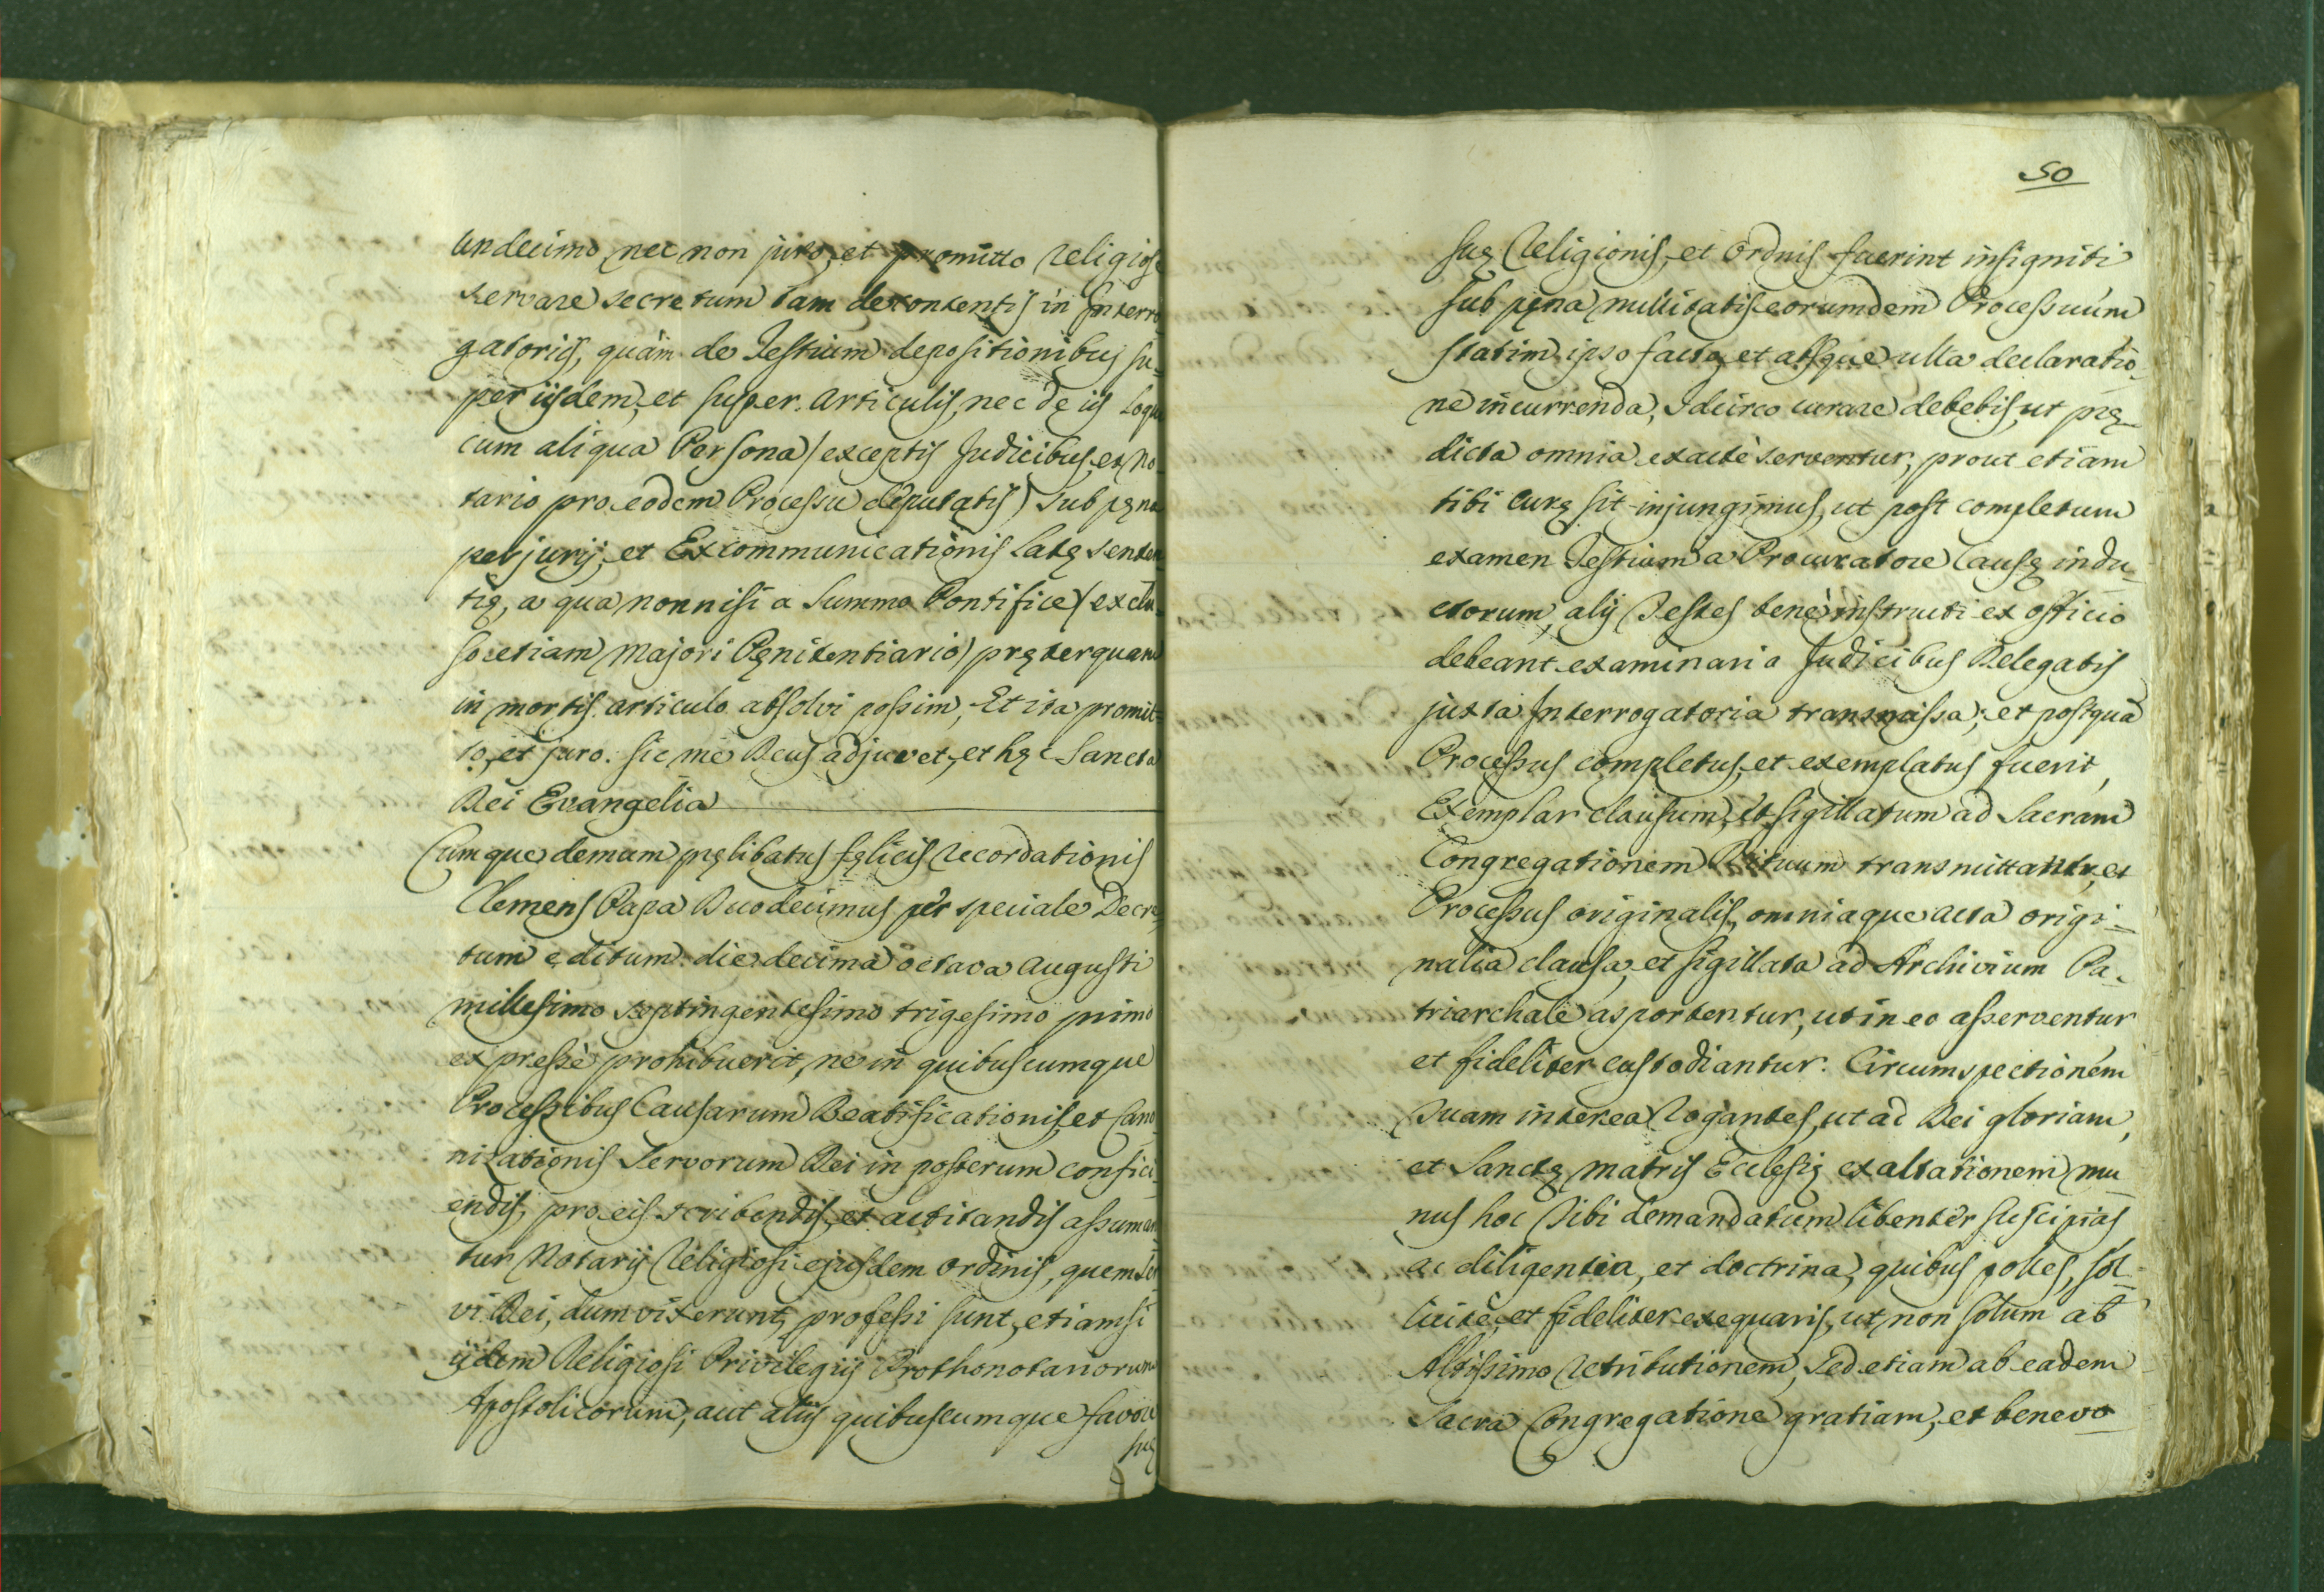 Undecimo, nec non juro, et promitto Religiose
servare secretum tam de contentis in Interro-
gatoriis, quàm de Testium depositionibus su-
per iisdem, et super Articulis, nec de iis Loqui
cum aliqua Persona (exceptis Judicibus, et No-
tario pro eodem Processu deputatis) sub pęna
perjurij, et Excommunicationis Latę senten
tię, a qua nonnisi a Summo Pontifice (exclu-
so etiam Majori Pęnitentiario) pręterquam
in mortis articulo absolvi possim, Et ita promit-
to, et juro. Sic me Deus adjuvet, et hęc Sancta
Dei Evangelia
Cumque demum pręlibatus fęlicis Recordationis
Clemens Papa Duodecimus per speciale Decre-
tum editum die decima octava Augusti
millesimo septingentesimo trigesimo primo
expressè prohibuerit, ne in quibuscumque
Processibus Causarum Beatificationis, et Cano-
nizationis Servorum Dei in posterum confici-
endis, pro eis scribendis, et actitandis assuman
tur Notarij Religiosi ejusdem Ordinis, quem Ser
vi Dei, dum vixerunt, professi sunt, etiamsi
ijdem Religiosi Privilegijs Prothonotariorum
Apostolicorum, aut aliis quibuscumque favore
suę
50
suę Religionis, et Ordnis fuerint insigniti
sub pęna nullitatis eorumdem Processuum
statim ipso facto, et absque ulla declaratio-
ne incurrenda, Idcirco curare debebis, ut prę-
dicta omnia exactè serventur, prout etiam
tibi curę sit injungimus, ut post completum
examen Testium a Procuratore Causę indu-
ctorum, alij Testes benè instructi ex officio
debeant examinari a Judicibus Delegatis
juxta Interrogatoria transmissa; et postquã
Processus completus, et exemplatus fuerit,
Exemplar clausum, et sigillatum ad Sacram
Congregationem Rituum transmittatur, et
Processus originalis, omniaque acta origi-
nalia clausa, et sigillata ad Archivium Pa-
triarchale asportentur, ut in eo asserventur
et fideliter custodiantur. Circumspectionem
Tuam interea Rogantes, ut ad Dei gloriam,
et Sanctę Matris Ecclesię exaltationem mu
nus hoc Tibi demandatum libenter suscipias,
ac diligentia, et doctrina, quibus polles, sol-
licitè, et fideliter exequaris, ut non solum ab
Altissimo Retributionem, Sed etiam ab eadem
Sacra Congregatione gratiam, et benevo